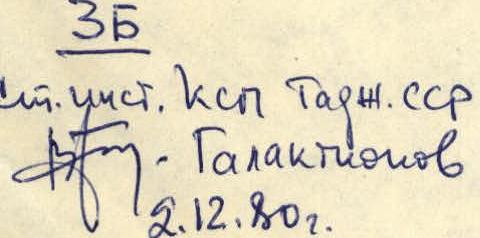 3Б
Ст. инст. КСП Тадж. ССР
- Галактионов
2.12.80г.